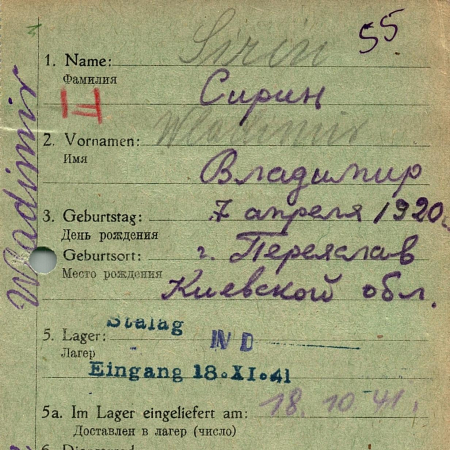 55
Sirin
1. Name:
Фамилия
Сирин
Wladimir
2. Vornamen:
Имя
Владимир
Wladimir
3. Geburtstag: 7 апреля 1920
День рождения
Geburtsort: г. Переяслав
Место рождения
Киевской обл.
Stalag IV D
5. Lager:
Лагер
Eingang 18.XI.41
5a. Im Lager eingeliefert am: 18.10.41.
Доставлен в лагер (число)